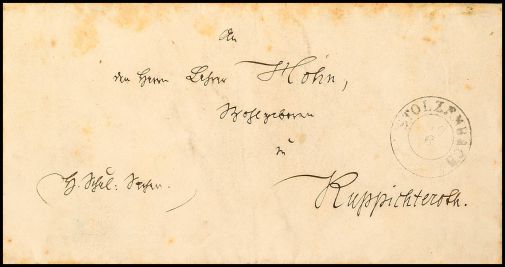 An
den Herrn Lehrer Höhn,
Wohlgeboren
in
Ruppichteroth.
H. Schul: Sachen.
STOLZENBACH